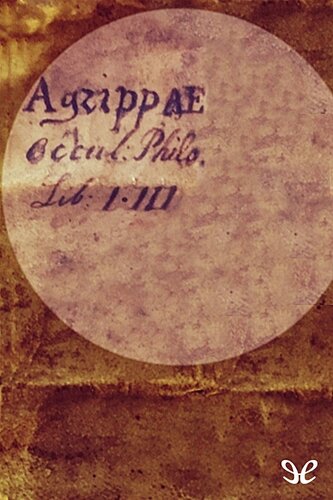 AgrippAE
Occul: Philo.
Lib: I·III